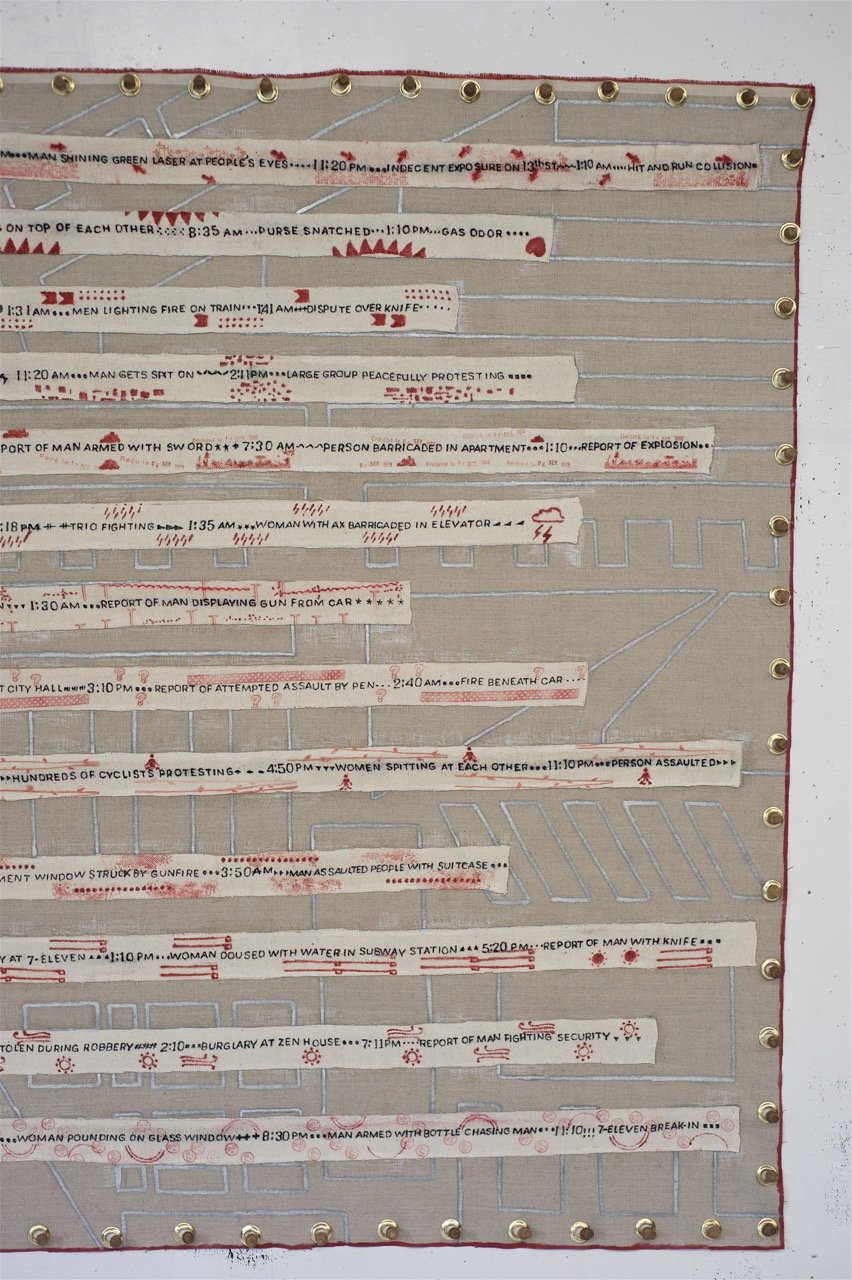 MAN SHINING GREEN LASER AT PEOPLE'S EYES····11:20 PM•••INDECENT EXPOSURE ON 13thST~~1:10 AM....HIT AND RUN COLLISION•
ON TOP OF EACH OTHER::::8:35 AM···PURSE SNATCHED···1:10 PM...GAS ODOR••••
1:31 AM•••MEN LIGHTING FIRE ON TRAIN····1:41 AM•++DISPUTE OVER KNIFE·····
11:20 AM•••MAN GETS SPIT ON~~~2:11PM•••LARGE GROUP PEACEFULLY PROTESTING••••
PORT OF MAN ARMED WITH SWORD★★+7:30 AM~~~PERSON BARRICADED IN APARTMENT•••1:10•••REPORT OF EXPLOSION••
:18 PM++TRIO FIGHTING►►►1:35 AM★★★WOMAN WITH AX BARRICADED IN ELEVATOR
1:30 AM•••REPORT OF MAN DISPLAYING GUN FROM CAR★★★★★
T CITY HALL 3:10 PM•••REPORT OF ATTEMPTED ASSAULT BY PEN...2:40 AM•••FIRE BENEATH CAR...
►►HUNDREDS OF CYCLISTS PROTESTING• - - 4:50 PM▼▼▼WOMEN SPITTING AT EACH OTHER•••11:10 PM•••PERSON ASSAULTED►►►
MENT WINDOW STRUCK BY GUNFIRE•••3:50 AM►►►MAN ASSAULTED PEOPLE WITH SUITCASE•••
Y AT 7-ELEVEN▲▲▲1:10 PM•••WOMAN DOUSED WITH WATER IN SUBWAY STATION▲▲▲5:20 PM···REPORT OF MAN WITH KNIFE•••
TOLEN DURING ROBBERY### 2:10•••BURGLARY AT ZEN HOUSE•••7:11PM····REPORT OF MAN FIGHTING SECURITY▼▼▼
•••WOMAN POUNDING ON GLASS WINDOW+++8:30 PM•••MAN ARMED WITH BOTTLE CHASING MAN•••11:10!!! 7-ELEVEN BREAK-IN•••